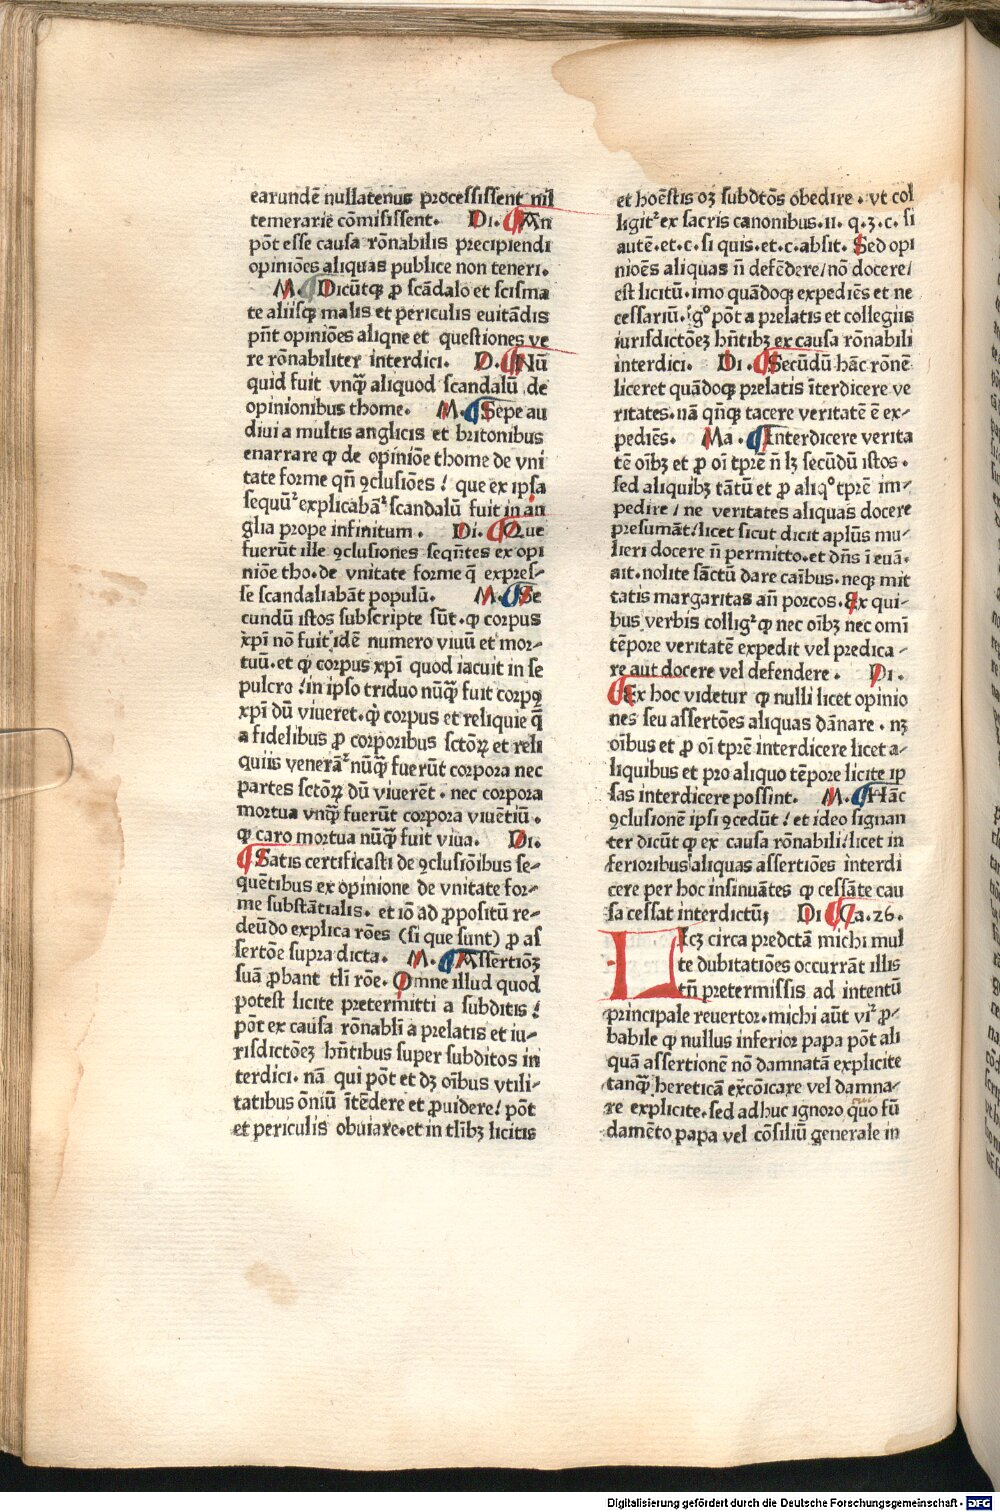 earundē nullatenus processissent nil
temerarie cōmisissent. Di. An
pōt esse causa rōnabilis precipiendi
opiniōes aliquas publice non teneri.
M. Dicūtꝙ ꝓ scādalo et scisma
te aliisꝙ malis et periculis euitādis
pn̄t opiniōes aliqne et questiones ve
re rōnabiliter interdici. D. Nū
quid fuit vnꝙ̄ aliquod scandalū de
opinionibus thome. M. Sepe au
diui a multis anglicis et britonibus
enarrare ꝙ de opiniōe thome de vni
tate forme qn̄ ꝯclusiōes / que ex ipsa
sequūt᷑ explicabāt᷑ scandalū fuit in an
glia prope infinitum. Di. Que
fuerūt ille ꝯclusiones seqn̄tes ex opi
niōe tho. de vnitate forme q̄ expres-
se scandaliabāt populū. M. Se
cundū istos subscripte sūt. ꝙ corpus
xp̄i nō fuit idē numero viuū et mor-
tuū. et ꝙ corpus xp̄i quod iacuit in se
pulcro / in ipso triduo nūꝙ̄ fuit corpꝰ
xp̄i dū viueret. ꝙ corpus et reliquie q̄
a fidelibus ꝓ corporibus sctōꝝ et reli
quiis venerāt᷑ nūꝙ̄ fuerūt corpora nec
partes sctōꝝ dū viuerēt. nec corpora
mortua vnꝙ̄ fuerūt corpora viuētiū.
ꝙ caro mortua nūꝙ̄ fuit viua. Di.
Satis certificasti de ꝯclusiōibus se-
quētibus ex opinione de vnitate for-
me substātialis. et iō ad ꝓpositū re-
deūdo explica rōes (si que sunt) ꝓ as
sertōe supra dicta. M. Assertiōꝫ
suā ꝓbant tl̄i rōe. Omne illud quod
potest licite pretermitti a subditis /
pōt ex causa rōnabli a prelatis et iu-
risdictōeꝫ hn̄tibus super subditos in
terdici. nā qui pōt et dꝫ oībus vtili-
tatibus ōniū ītēdere et ꝓuidere / pōt
et periculis obuiare. et in tl̄ibꝫ licitis
et hoēstis oꝫ subdtōs obedire. vt col
ligit᷑ ex sacris canonibus. 11. q. 3. c. si
autē. et. c. si quis. et. c. absit. Sed opi
nioēs aliquas n̄ defēdere / nō docere /
est licitū. imo quādoꝙ expediēs et ne
cessariū. gͦ pōt a prelatis et collegiis
iurisdictōeꝫ hn̄tibꝫ ex causa rōnabili
interdici. Di. Secūdū hāc rōnē
liceret quādoꝙ prelatis īterdicere ve
ritates. nā qn̄ꝙ tacere veritatē ē ex-
pediēs. Ma. Interdicere verita
tē oībꝫ et ꝓ oī tp̄re n̄ lꝫ secūdū istos.
sed aliquibꝫ tātū et ꝓ aliqͦ tp̄re im-
pedire / ne veritates aliquas docere
presumāt / licet sicut dicit apl̄us mu-
lieri docere n̄ permitto. et dn̄s ī euā.
ait. nolite sāctū dare caībus. neqꝫ mit
tatis margaritas an̄ porcos. Ex qui-
bus verbis collig᷑ ꝙ nec oībꝫ nec omī
tēpore veritatē expedit vel predica-
re aut docere vel defendere. Di.
Ex hoc videtur ꝙ nulli licet opinio
nes seu assertōes aliquas dānare. nꝫ
oībus et ꝓ oī tp̄re interdicere licet a-
liquibus et pro aliquo tēpore licite ip
sas interdicere possint. M. Hāc
ꝯclusionē ipsi ꝯcedūt / et ideo signan
ter dicūt ꝙ ex causa rōnabili / licet in
ferioribus aliquas assertiōes interdi
cere per hoc insinuātes ꝙ cessāte cau
sa cessat interdictūꝫ Di Ca. 26.
Licꝫ circa predctā michi mul
te dubitatiōes occurrāt illis
tn̄ pretermissis ad intentū
principale reuertor. michi aūt vi᷑ ꝓ-
babile ꝙ nullus inferior papa pōt ali
quā assertionē nō damnatā explicite
tanꝙ̄ hereticā excōicare vel damna-
re explicite. sed adhuc ignoro quo fū
damēto papa vel cōsiliū generale in
Digitalisierung gefördert durch die Deutsche Forschungsgemeinschaft - DFG